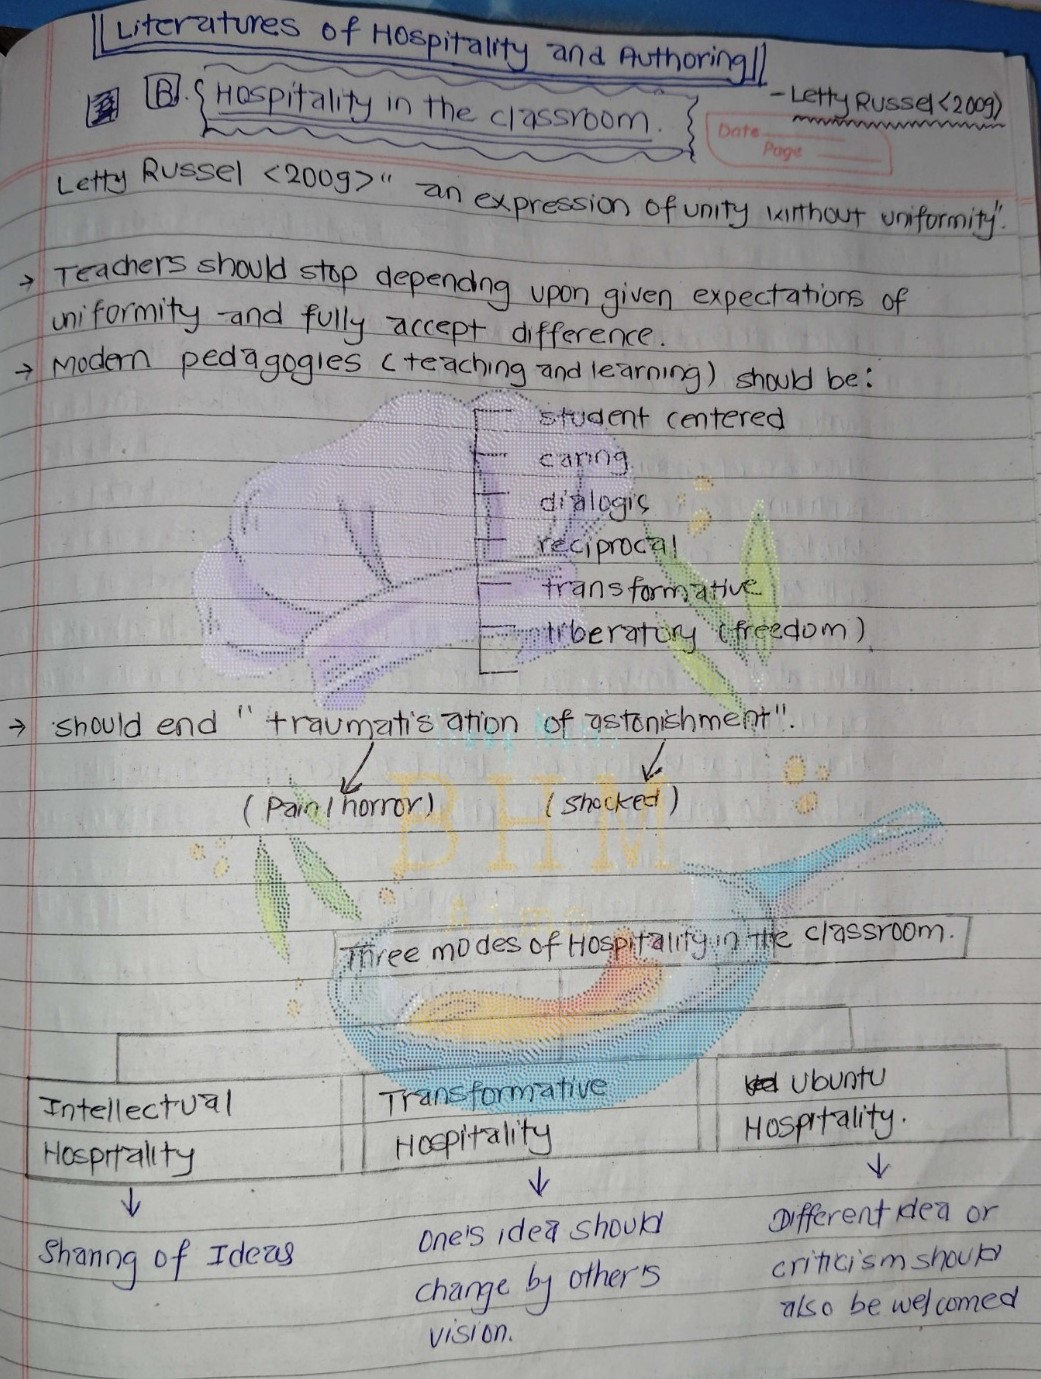 Literatures of Hospitality and Authoring
B. Hospitality in the classroom.
- Letty Russel <2009>
Date
Page
Letty Russel <2009> " an expression of unity without uniformity".
→ Teachers should stop dependng upon given expectations of
uniformity and fully accept difference.
→ Modern pedagogies (teaching and learning) should be:
student centered
caring
dialogis
reciprocal
transformative
liberatory (freedom)
→ should end " traumatisation of astonishment".
(Pain/horror) (Shocked)
BHM
Three modes of Hospitality in the classroom.
Intellectual
Hospitality
Transformative
Hospitality
Ubuntu
Hospitality.
↓ ↓ ↓
Sharing of Ideas
One's idea should
change by other's
vision.
Different idea or
criticism should
also be welcomed